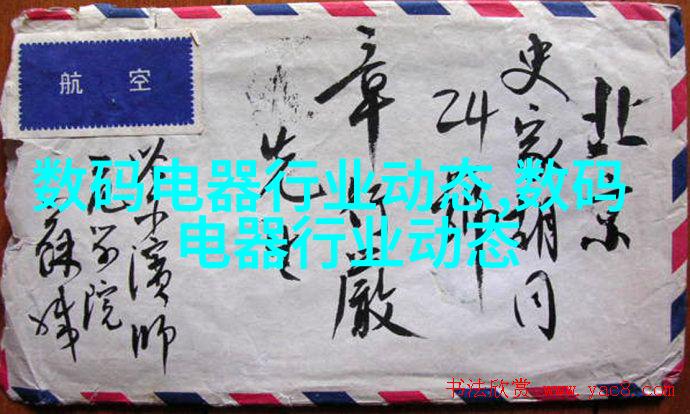 航空
北京
史家胡同
24
章行嚴
先生
数码电器行业动态,数码
电器行业动态
书法欣赏 www.yac8.com